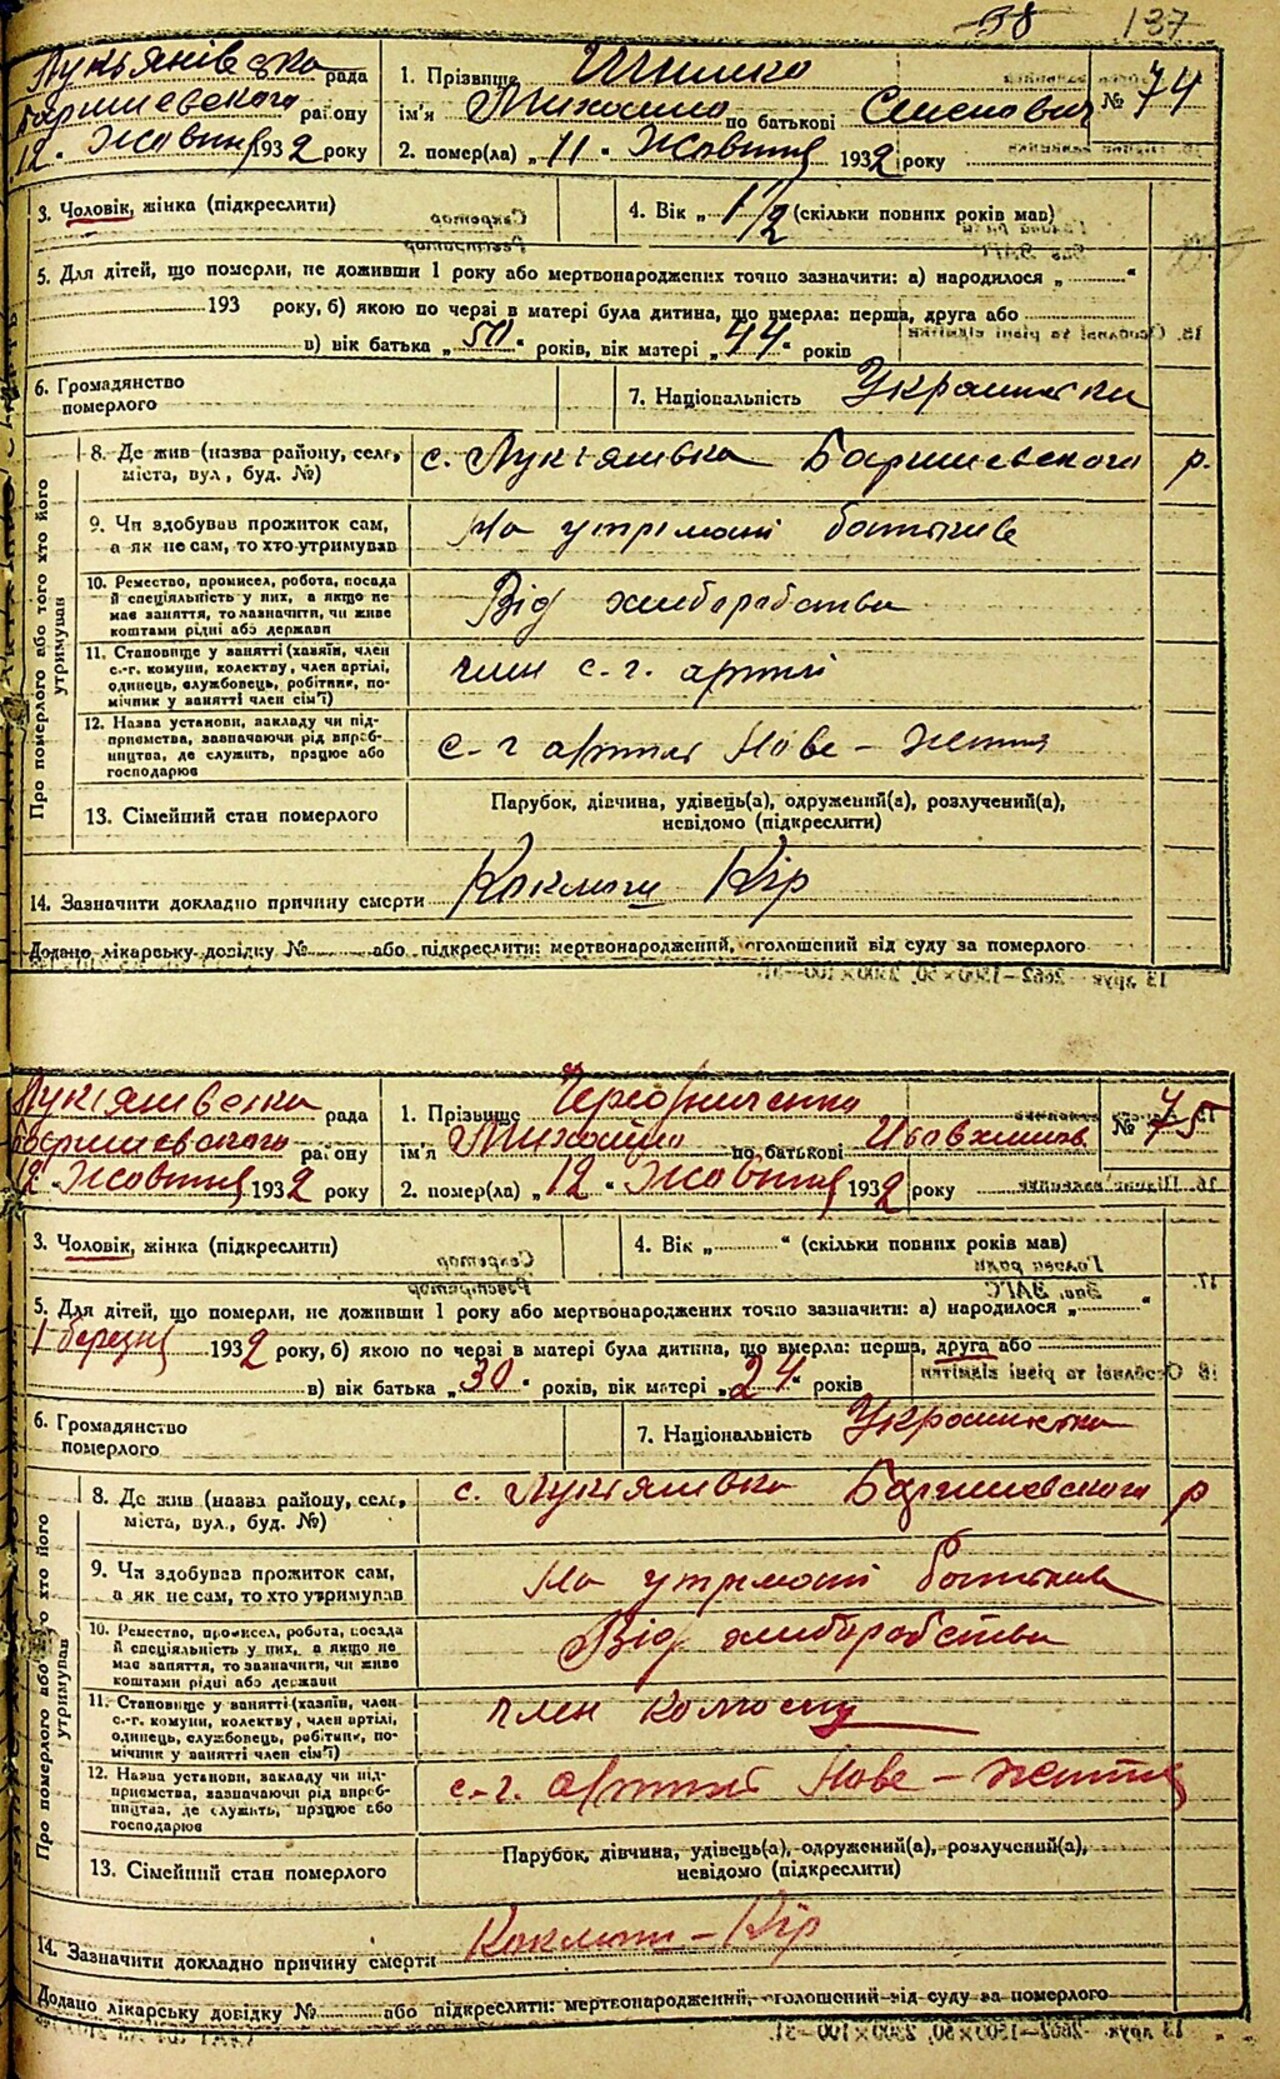 38 137
Лукьянівська рада
Баришевского району
12 " Жовтня 1932 року
1. Прізвище Шимко
ім'я Михайло по батькові Семенович
№ 74
2. помер(ла) „ 11 " Жовтня 1932 року
3. Чоловік, жінка (підкреслити)
4. Вік „ 1 1/2 (скільки повних років мав)
5. Для дітей, що померли, не доживши 1 року або мертвонароджених точно зазначити: а) народилося „ "
193 року, б) якою по черзі в матері була дитина, що вмерла: перша, друга або
в) вік батька „ 50 " років, вік матері „ 44 " років
6. Громадянство
померлого
7. Національність Украинська
Про померлого або того хто його утримував
8. Де жив (назва району, села,
міста, вул., буд. №)
с. Лукіянивка Баришевского р.
9. Чи здобував прожиток сам,
а як не сам, то хто утримував
На утримані батьків
10. Ремество, промисел, робота, посада
й спеціяльність у них, а якщо не
має заняття, то зазначити, чи живе
коштами рідні або держави
Від хліборобства
11. Становище у занятті (хазяїн, член
с.-г. комуни, колективу, член артілі,
одинець, службовець, робітник, по-
мічник у занятті член сім'ї)
член с.-г. артілі
12. Назва установи, закладу чи під-
приємства, зазначаючи рід вироб-
ництва, де служить, працює або
господарює
с-г артіль Нове - життя
13. Сімейний стан померлого
Парубок, дівчина, удівець(а), одружений(а), розлучений(а),
невідомо (підкреслити)
14. Зазначити докладно причину смерти Коклюш Кір
Додано лікарську довідку № або підкреслити: мертвонароджений, оголошений від суду за померлого
13 друк. -2662-1500×50, 2300×100-31.
Лукіянивська рада
Баришевского району
12 " Жовтня 1932 року
1. Прізвище Чередниченко
ім'я Михайло по батькові
№ 75
2. помер(ла) „ 12 " Жовтня 1932 року
3. Чоловік, жінка (підкреслити)
4. Вік „ " (скільки повних років мав)
5. Для дітей, що померли, не доживши 1 року або мертвонароджених точно зазначити: а) народилося „ "
1 березня 1932 року, б) якою по черзі в матері була дитина, що вмерла: перша, друга або
в) вік батька „ 30 " років, вік матері „ 24 " років
6. Громадянство
померлого
7. Національність Украинська
Про померлого або того хто його утримував
8. Де жив (назва району, села,
міста, вул., буд. №)
с. Лукіянивка Баришевского р
9. Чи здобував прожиток сам,
а як не сам, то хто утримував
На утримані батьків
10. Ремество, промисел, робота, посада
й спеціяльність у них, а якщо не
має заняття, то зазначити, чи живе
коштами рідні або держави
Від хліборобства
11. Становище у занятті (хазяїн, член
с.-г. комуни, колективу, член артілі,
одинець, службовець, робітник, по-
мічник у занятті член сім'ї)
член колгоспу
12. Назва установи, закладу чи під-
приємства, зазначаючи рід вироб-
ництва, де служить, працює або
господарює
с-г. артіль Нове - життя
13. Сімейний стан померлого
Парубок, дівчина, удівець(а), одружений(а), розлучений(а),
невідомо (підкреслити)
14. Зазначити докладно причину смерти Коклюш - Кір
Додано лікарську довідку № або підкреслити: мертвонароджений, оголошений від суду за померлого
13 друк. -2662-1500×50, 2300×100-31.